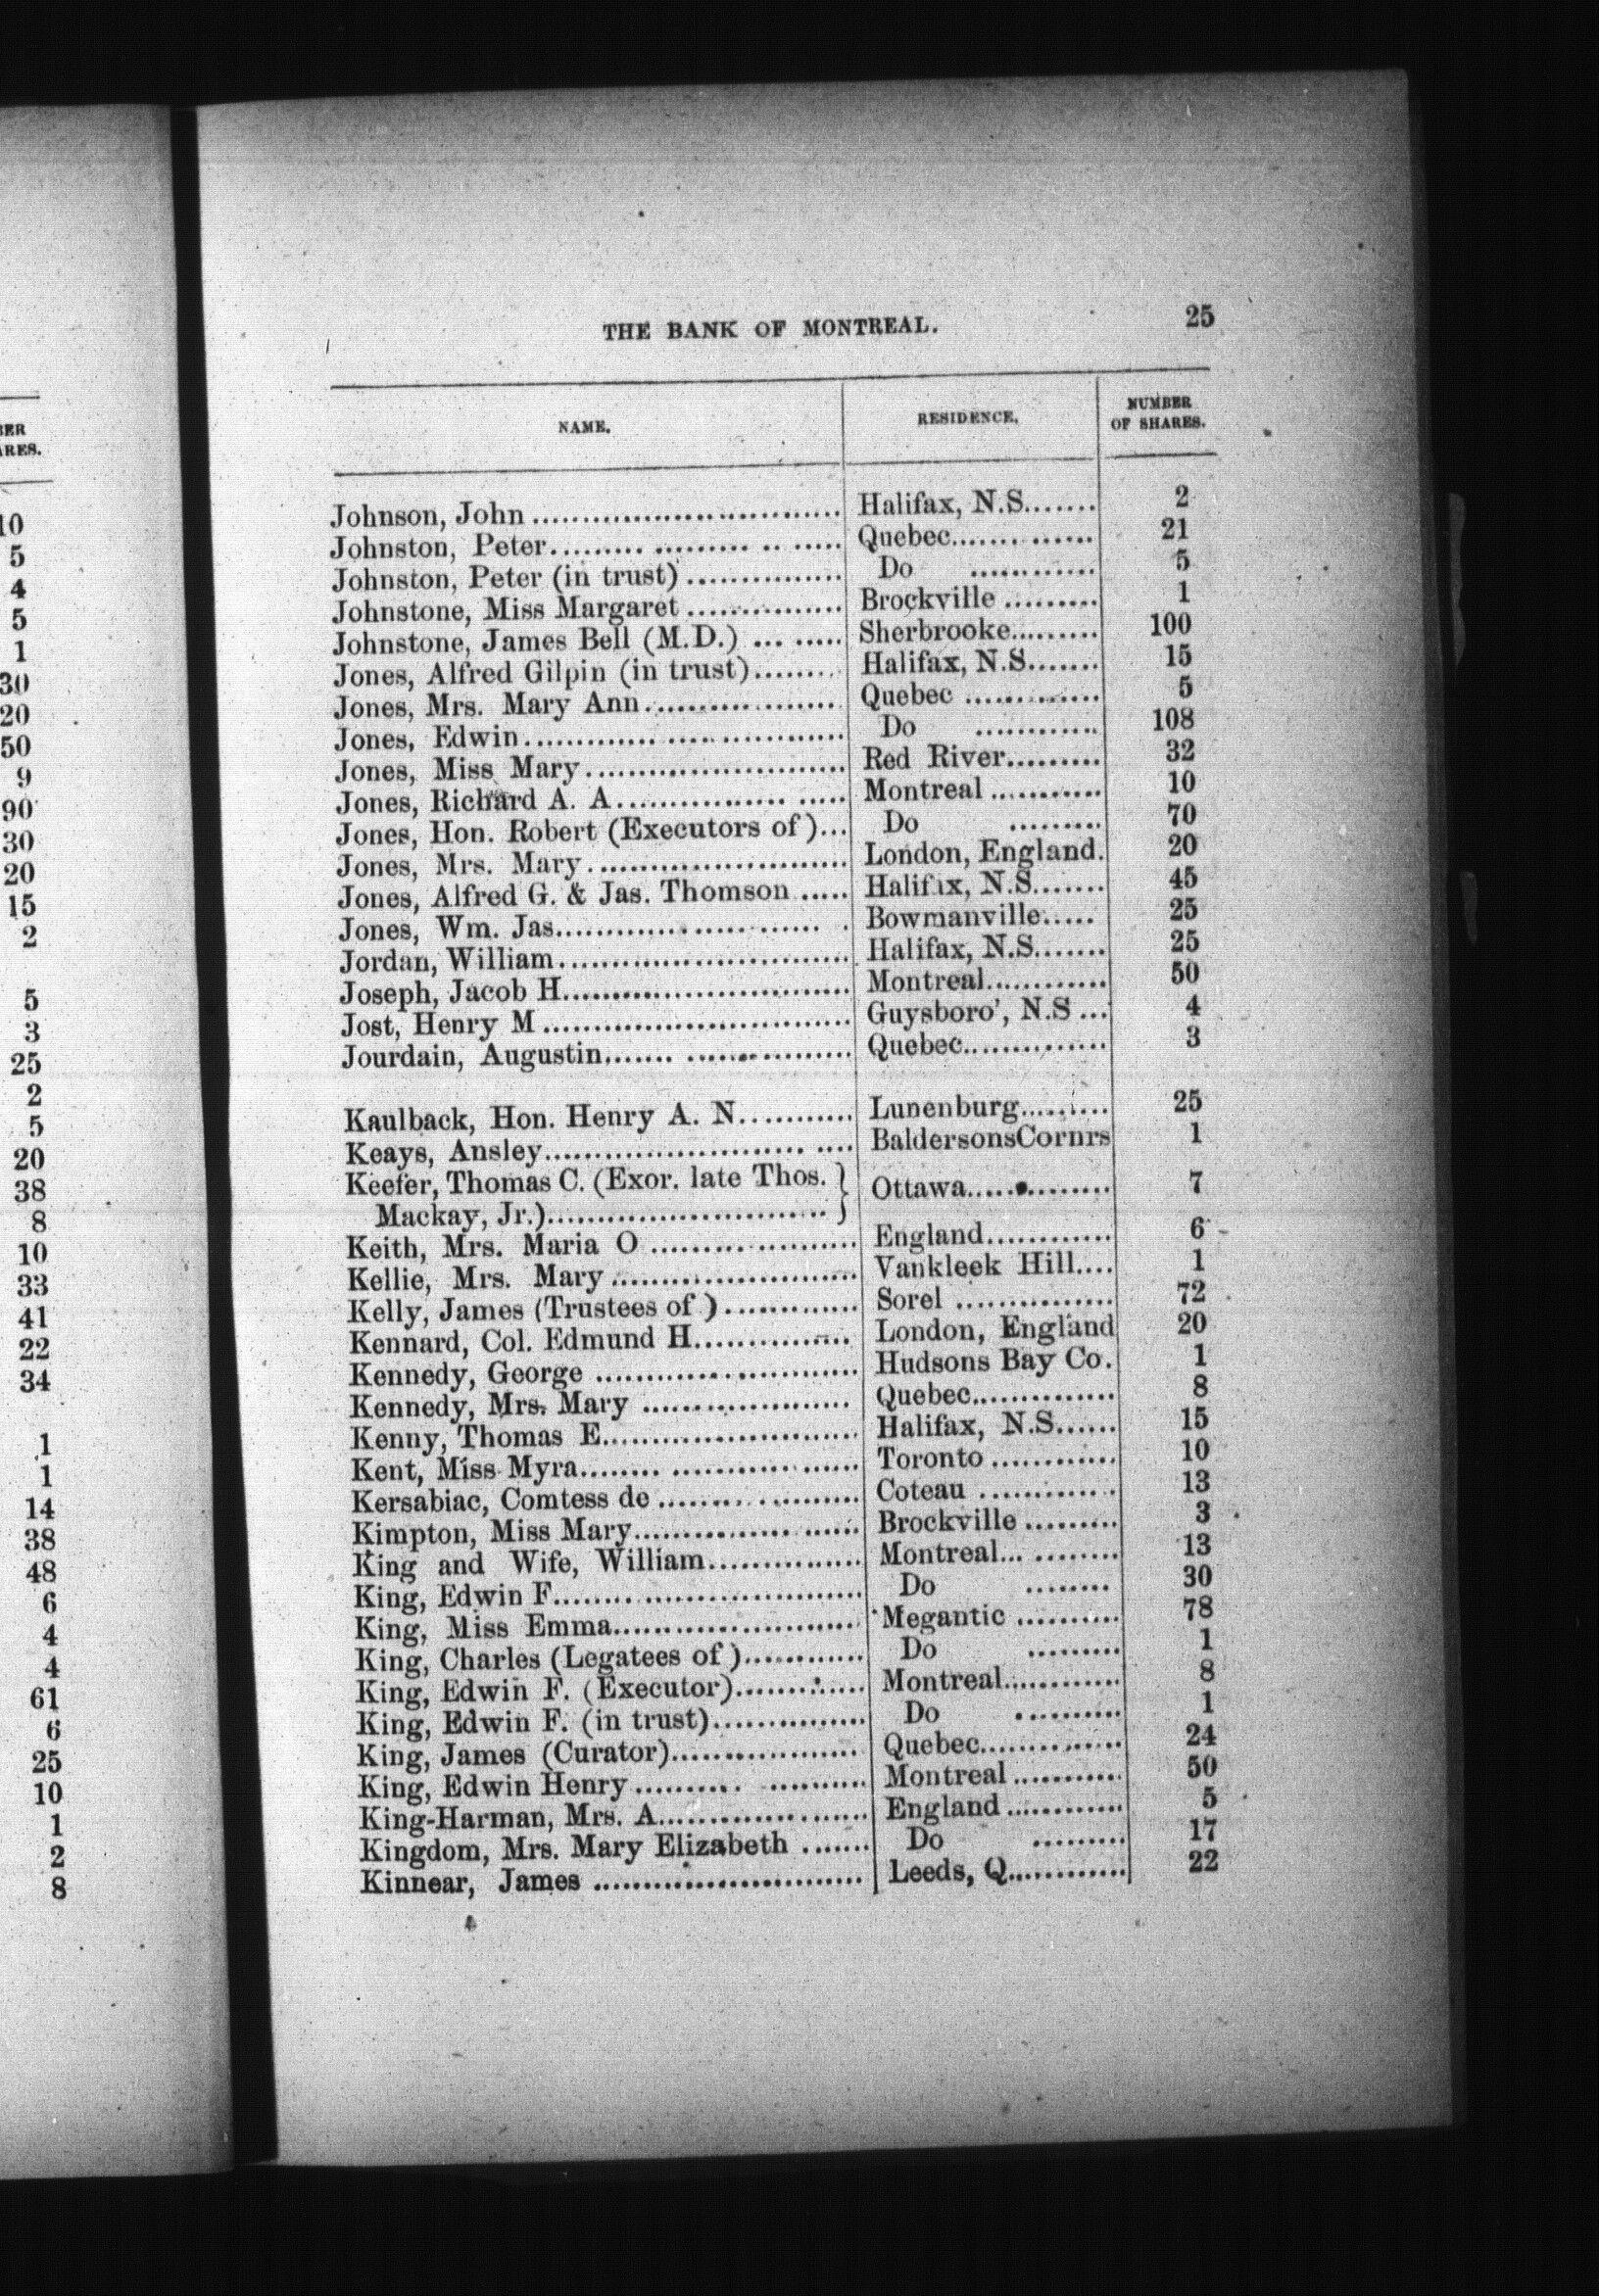 THE BANK OF MONTREAL. 25
NAME. RESIDENCE. NUMBER OF SHARES.
Johnson, John Halifax, N.S. 2
Johnston, Peter Quebec 21
Johnston, Peter (in trust) Do 5
Johnstone, Miss Margaret Brockville 1
Johnstone, James Bell (M.D.) Sherbrooke 100
Jones, Alfred Gilpin (in trust) Halifax, N.S. 15
Jones, Mrs. Mary Ann Quebec 5
Jones, Edwin Do 108
Jones, Miss Mary Red River 32
Jones, Richard A. A. Montreal 10
Jones, Hon. Robert (Executors of) Do 70
Jones, Mrs. Mary London, England. 20
Jones, Alfred G. & Jas. Thomson Halifax, N.S. 45
Jones, Wm. Jas. Bowmanville 25
Jordan, William Halifax, N.S. 25
Joseph, Jacob H. Montreal 50
Jost, Henry M Guysboro', N.S 4
Jourdain, Augustin Quebec 3
Kaulback, Hon. Henry A. N. Lunenburg 25
Keays, Ansley BaldersonsCornrs 1
Keefer, Thomas C. (Exor. late Thos.
Mackay, Jr.) Ottawa 7
Keith, Mrs. Maria O England 6
Kellie, Mrs. Mary Vankleek Hill 1
Kelly, James (Trustees of ) Sorel 72
Kennard, Col. Edmund H. London, England 20
Kennedy, George Hudsons Bay Co. 1
Kennedy, Mrs. Mary Quebec 8
Kenny, Thomas E. Halifax, N.S. 15
Kent, Miss Myra Toronto 10
Kersabiac, Comtess de Coteau 13
Kimpton, Miss Mary Brockville 3
King and Wife, William Montreal 13
King, Edwin F. Do 30
King, Miss Emma Megantic 78
King, Charles (Legatees of ) Do 1
King, Edwin F. (Executor) Montreal 8
King, Edwin F. (in trust) Do 1
King, James (Curator) Quebec 24
King, Edwin Henry Montreal 50
King-Harman, Mrs. A. England 5
Kingdom, Mrs. Mary Elizabeth Do 17
Kinnear, James Leeds, Q. 22